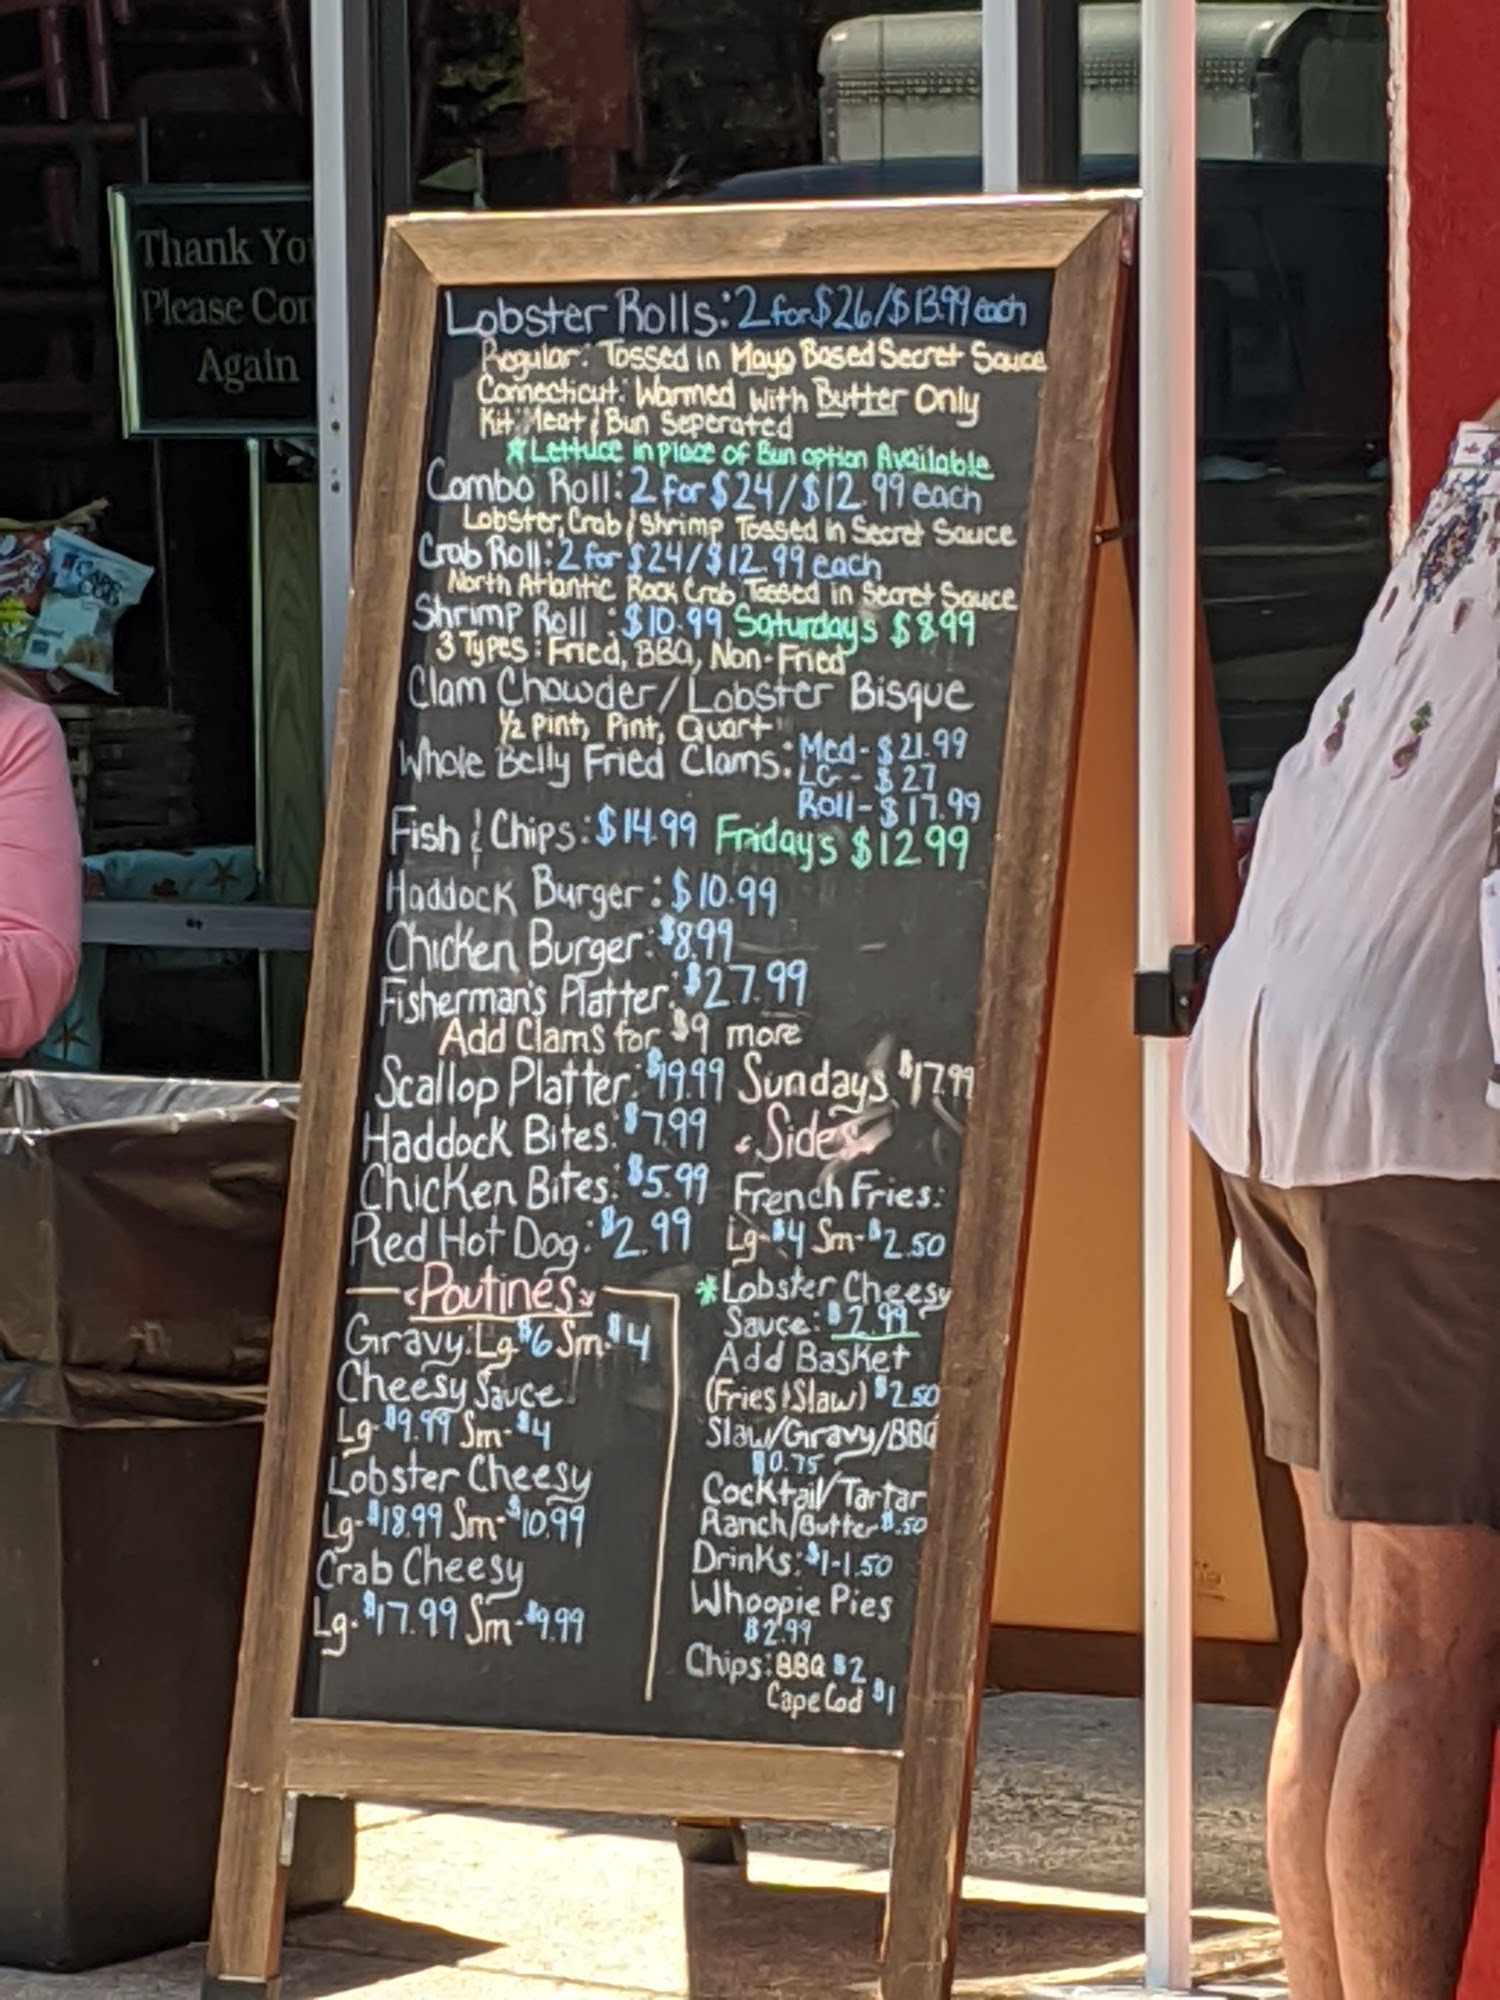 Thank You
Please Com
Again
CAPE COD
Lobster Rolls: 2 for $26/$13.99 each
Regular: Tossed in Mayo Based Secret Sauce
Connecticut: Warmed with Butter Only
Kit: Meat & Bun Seperated
*Lettuce in place of Bun option Available
Combo Roll: 2 for $24/$12.99 each
Lobster, Crab/Shrimp Tossed in Secret Sauce
Crab Roll: 2 for $24/$12.99 each
North Atlantic Rock Crab Tossed in Secret Sauce
Shrimp Roll: $10.99 Saturday's $8.99
3 Types: Fried, BBQ, Non-Fried
Clam Chowder/Lobster Bisque
1/2 Pint, Pint, Quart
Whole Belly Fried Clams: Med- $21.99
LG- $27
Roll- $17.99
Fish & Chips: $14.99 Friday's $12.99
Haddock Burger: $10.99
Chicken Burger: $8.99
Fisherman's Platter: $27.99
Add Clams for $9 more
Scallop Platter: $19.99 Sundays $17.99
Haddock Bites: $7.99
Chicken Bites: $5.99
Red Hot Dog: $2.99
Poutines
Gravy: Lg-$6 Sm-$4
Cheesy Sauce
Lg-$9.99 Sm-$4
Lobster Cheesy
Lg-$18.99 Sm-$10.99
Crab Cheesy
Lg-$17.99 Sm-$9.99
Sides
French Fries:
Lg-$4 Sm-$2.50
*Lobster Cheesy
Sauce: $2.99
Add Basket
(Fries & Slaw) $2.50
Slaw/Gravy/BBQ
$0.75
Cocktail/Tartar
Ranch/Butter $.50
Drinks: $1-1.50
Whoopie Pies
$2.99
Chips: BBQ $2
Cape Cod $1